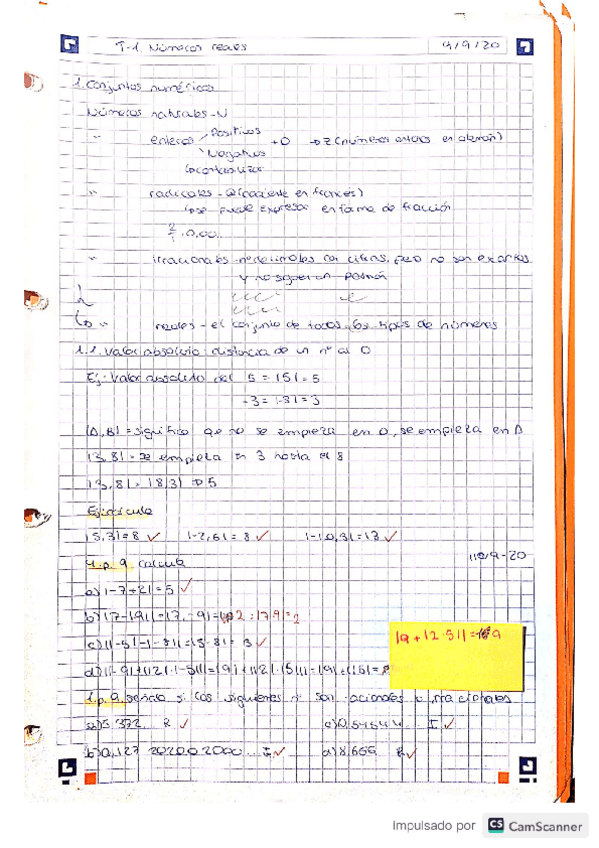 T-1. Números reales 9/9/20
1. Conjuntos numéricos
Números naturales - N
" enteros Positivos + 0 → Z (números enteros en alemán)
Negativos
" racicales - Q (cociente en frances)
↳ se puede expresar en forma de fracción
" irracionales - nº decimales con cifras, pero no son exactos
y no siguen un patrón
↳ " reales - el conjunto de todos los tipos de números
1.1. Valor absoluto distancia de un nº al 0
Ej: Valor absoluto del 5 = |5| = 5
-3 = |-3| = 3
|A,B| = significa que no se empieza en 0, se empieza en A
|3,8| = se empieza en 3 hasta el 8
|3,8| = |8,3| → 5
Ejercicio
|-2,6| = 8 ✓ |-10,3| = 13 ✓
4.p.9. calcula 10/9-20
a) |-7+2| = 5 ✓
c) ||-5|-|-8|| = |5-8| = 3 ✓
1.p.9. señala si los siguientes nº son racionales o irracionales
a) 5,372 R ✓ c) 0,54544... I ✓
b) 0,127 202002000... I ✓ d) 8,666 R ✓
Impulsado por CS CamScanner